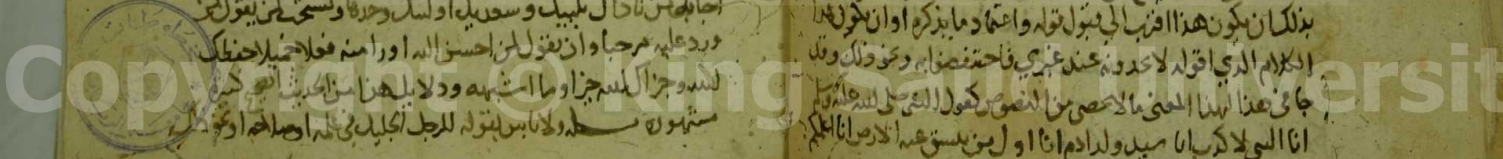 بذلك ان يكون هذا اقرب الى قبول قوله واعتماد ما يذكره او ان يكون هذا
الكلام الذي اقوله لا تجدونه عند غيري فاحتفظوا به ونحو ذلك وقد
جا في هذا لهذا المعنى ما لا يحصى من النصوص كقول النبي صلى الله عليه وسلم
انا النبي لا كذب انا سيد ولد ادم انا اول من تنشق عنه الارض انا اعلمكم
اجابة من ناداك لبيك وسعديك او لبيك وحدها ويستحب ان يقول لمن
ورد عليه مرحبا وان يقول لمن احسن اليه او راى منه فعلا جميلا حفظك
الله وجزاك الله خيرا وما اشبهه ودلايل هذا من الحديث الصحيح كثيرة
مشهورة مسئلة ولا باس بقوله للرجل الجليل في علمه او صلاحه او نحو ذلك
Copyright © King Saud Universit